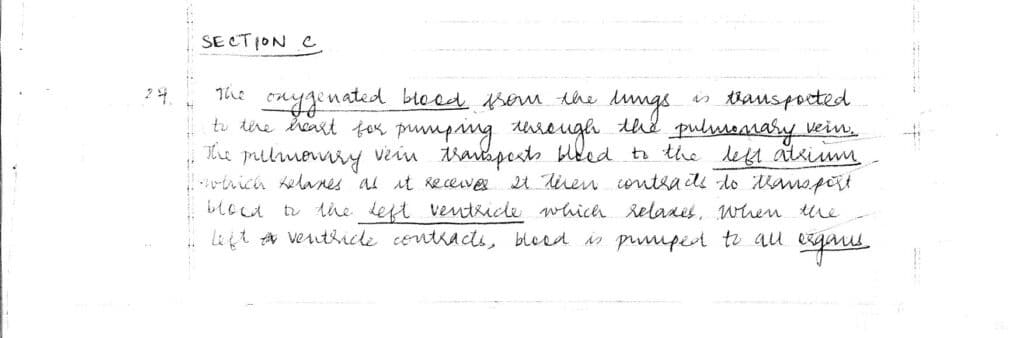 SECTION C
29. The oxygenated blood from the lungs is transported
to the heart for pumping through the pulmonary vein.
The pulmonary vein transports blood to the left atrium
which relaxes as it receives it then contracts to transport
blood to the left ventricle which relaxes. When the
left ventricle contracts, blood is pumped to all organs